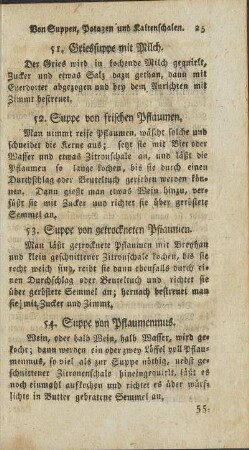 Von Suppen, Potagen und Kaltenschalen. 25
51. Griessuppe mit Milch.
Der Gries wird in kochende Milch gequirlt,
Zucker und etwas Salz dazu gethan, dann mit
Eyerdotter abgezogen und bey dem Anrichten mit
Zimmt bestreuet.
52. Suppe von frischen Pflaumen.
Man nimmt reife Pflaumen, wäscht solche und
schneidet die Kerne aus; setzt sie mit Bier oder
Wasser und etwas Zitronschale an, und läßt die
Pflaumen so lange kochen, bis sie durch einen
Durchschlag oder Beuteltuch gerieben werden kön-
nen. Dann gießt man etwas Wein hinzu, ver-
süßt sie mit Zucker und richtet sie über geröstete
Semmel an.
53. Suppe von getrockneten Pflaumen.
Man läßt getrocknete Pflaumen mit Breyhan
und klein geschnittener Zitronschale kochen, bis sie
recht weich sind, reibt sie dann ebenfalls durch ei-
nen Durchschlag oder Beuteltuch und richtet sie
über geröstete Semmel an; hernach bestreuet man
sie mit Zucker und Zimmt.
54. Suppe von Pflaumenmus.
Wein, oder halb Wein, halb Wasser, wird ge-
kocht; dann werden ein oder zwey Löffel voll Pflau-
menmus, so viel als zur Suppe nöthig, nebst ge-
schnittener Zitronenschale hineingequirlt, läßt es
noch einmahl aufkochen und richtet es über würf-
lichte in Butter gebratene Semmel an.
55.